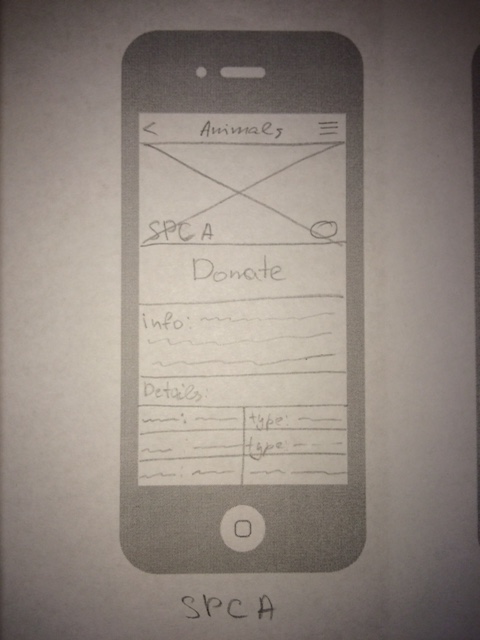 < Animals
SPCA
Donate
info:
Details:
type:
type
SPCA